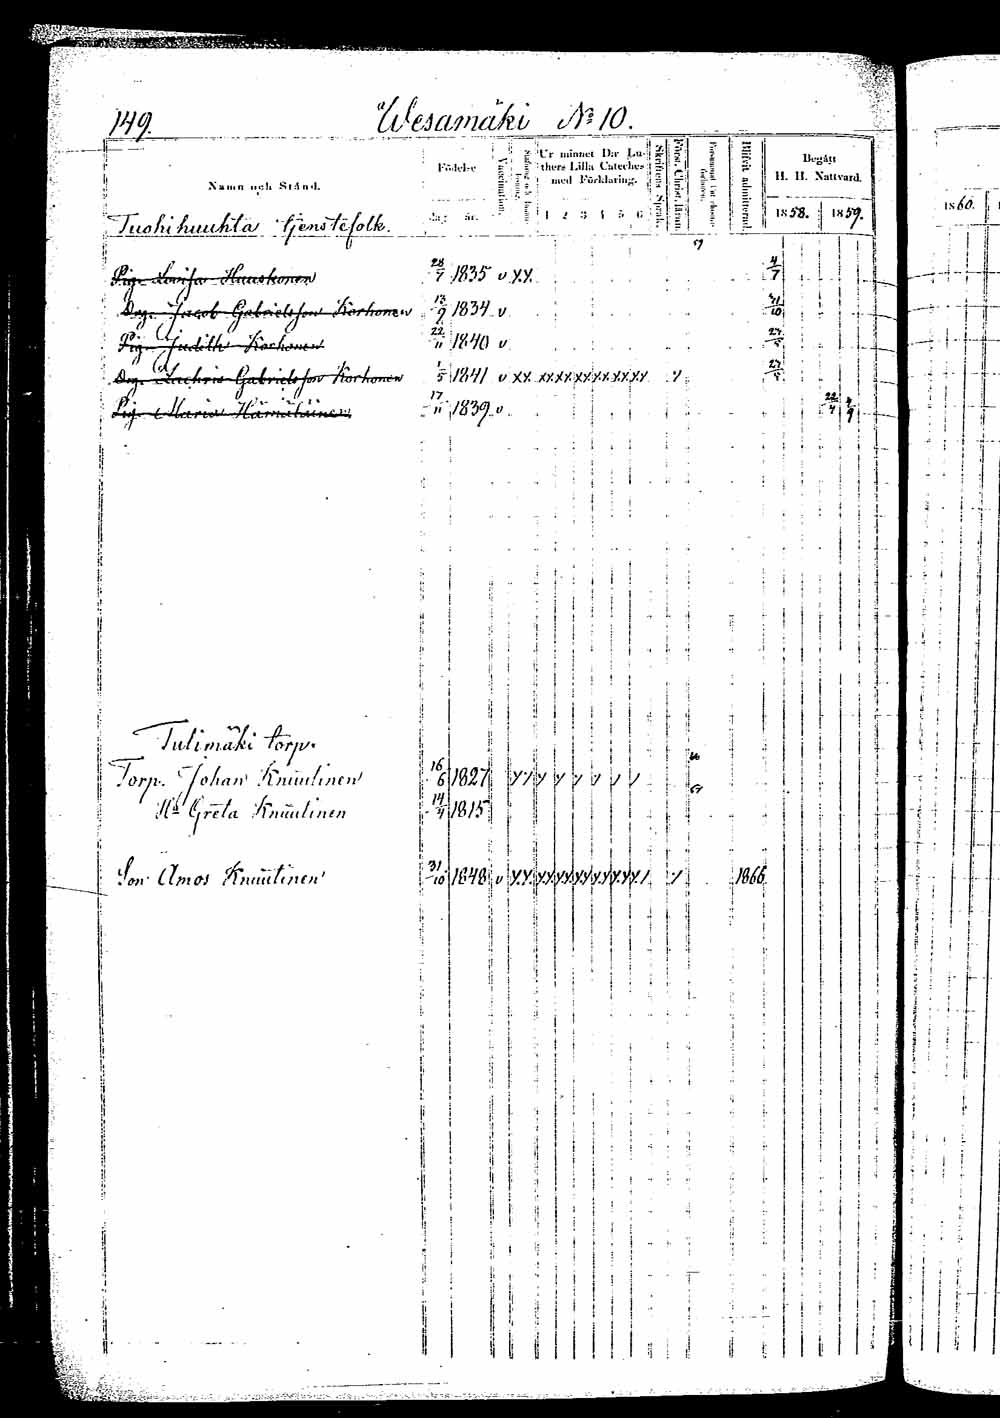 149. Wesamäki No 10.
Namn och Stånd. Födelse dag år. Vaccination. Ur minnet D:r Luthers Lilla Cateches med Förklaring. 1 2 3 4 5 6 Skriftens Språk. Först. Christ. läran. Blifvit admitterad. Begått H. H. Nattvard. 1858. 1859. 1860.
Tuohihuuhta tjenstefolk.
Pig. Lovisa Huuskonen 28/7 1835 v xx 4/7
Drg. Jacob Gabrielsson Korhonen 13/9 1834 v 31/10
Pig. Judith Korhonen 22/11 1840 v 27/5
Drg. Zachris Gabrielsson Korhonen 1/5 1841 v xx xxxxxxxxxxxx 27/5
Pig. Maria Hämäläinen 17/11 1839 v 22/4 4/9
Tulimäki torp.
Torp. Johan Knuutinen 16/6 1827
Hu Greta Knuutinen 14/4 1815
Son Amos Knuutinen 31/10 1848 v 1866